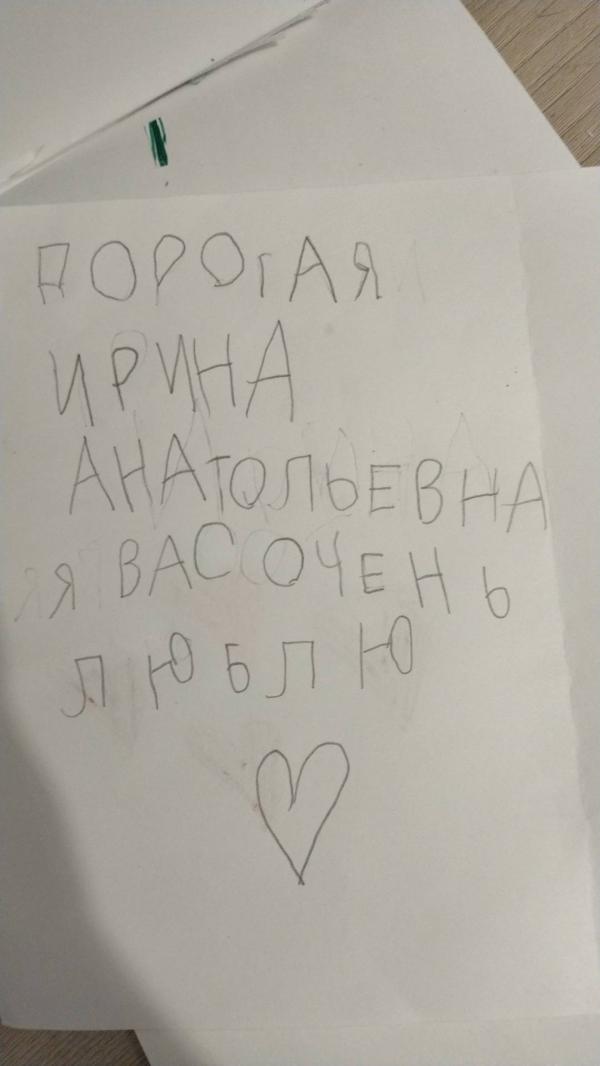 ДОРОГАЯ
ИРИНА
АНАТОЛЬЕВНА
Я ВАС ОЧЕНЬ
ЛЮБЛЮ